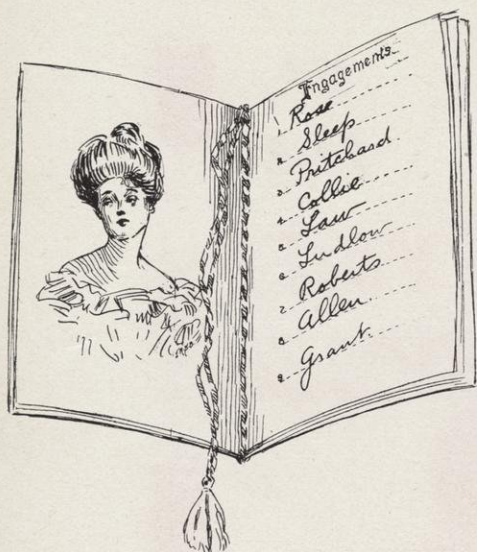 Engagements
1. Rose
2. Sleep
3. Pritchard
4. Collie
5. Law
6. Ludlow
7. Roberts
8. Allen
9. Grant